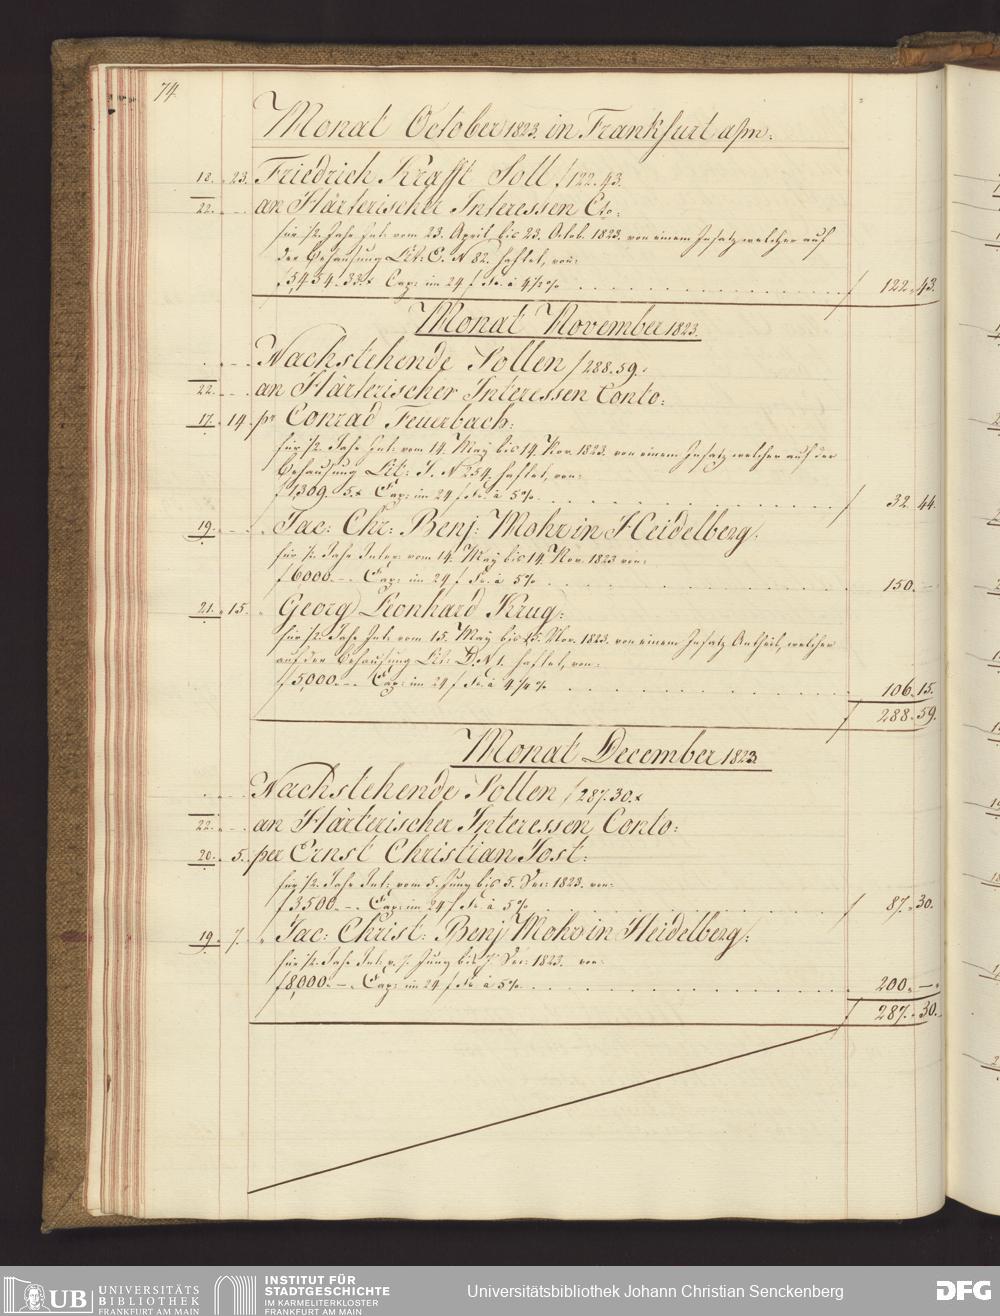 74.
Monat October 1823. in Frankfurt a/m:
18. 23. Friedrich Krafft Soll f 122.43.
22. - an Härterischer Interessen Cto:
für 1/2 Jahr Int: vom 23. April bis 23. Octob. 1823. von einem Insatz welcher auf
der Behausung Lit: C. N 82. haftet, von:
f 5,454.33.x Cap: im 24 f Fs. à 4 1/2 % f 122.43.
Monat November 1823.
Nachstehende Sollen f 288.59.
22. - an Härterischer Interessen Conto:
17. 14. pr Conrad Feuerbach:
für 1/2 Jahr Int: vom 14. May bis 14. Nov. 1823. von einem Insatz welcher auf der
Behausung Lit: J. N 254. haftet, von:
f 1,309. 5.x Cap: im 24 f Fs. à 5 % f 32.44.
19. - " Jac: Chr: Benj: Mohr in Heidelberg.
für 1/2 Jahr Intr. vom 14. May bis 14. Nov. 1823 von:
f 6000.-. Cap: im 24 f Fs. à 5 % 150.-
21. 15. " Georg Leonhard Krug:
für 1/2 Jahr Int: vom 15. May bis 15. Nov. 1823. von einem Insatz Antheil, welcher
auf der Behausung Lit: D. N 1. haftet, von:
f 5,000.-. Cap: im 24 f Fs. à 4 1/4 % 106.15.
f 288.59.
Monat December 1823
Nachstehende Sollen f 287.30.x
22. - an Härterischer Interessen Conto:
20. 5. per Ernst Christian Jost:
für 1/2 Jahr Int: vom 5. Juny bis 5. Dec: 1823. von:
f 3500.-. Cap: im 24 f Fs. à 5 % f 87.30.
19. 7. " Jac: Christ: Benj Mohr in Heidelberg:
für 1/2 Jahr Int: v. 7. Juny bis 7 Dec: 1823. von:
f 8,000.-. Cap: im 24 f Fs. à 5 % 200.-.
f 287.30.
UB UNIVERSITÄTS
BIBLIOTHEK
FRANKFURT AM MAIN
INSTITUT FÜR
STADTGESCHICHTE
IM KARMELITERKLOSTER
FRANKFURT AM MAIN
Universitätsbibliothek Johann Christian Senckenberg
DFG